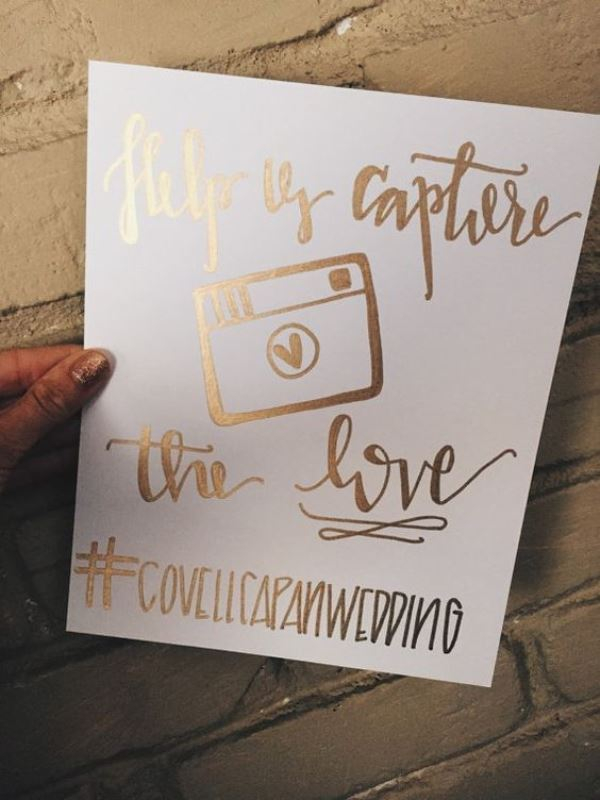 Help us capture
the love
#COVELLCAPANWEDDING